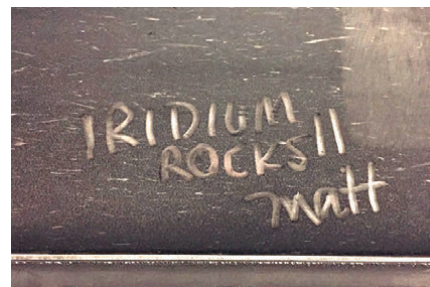 IRIDIUM
ROCKS!!
Matt